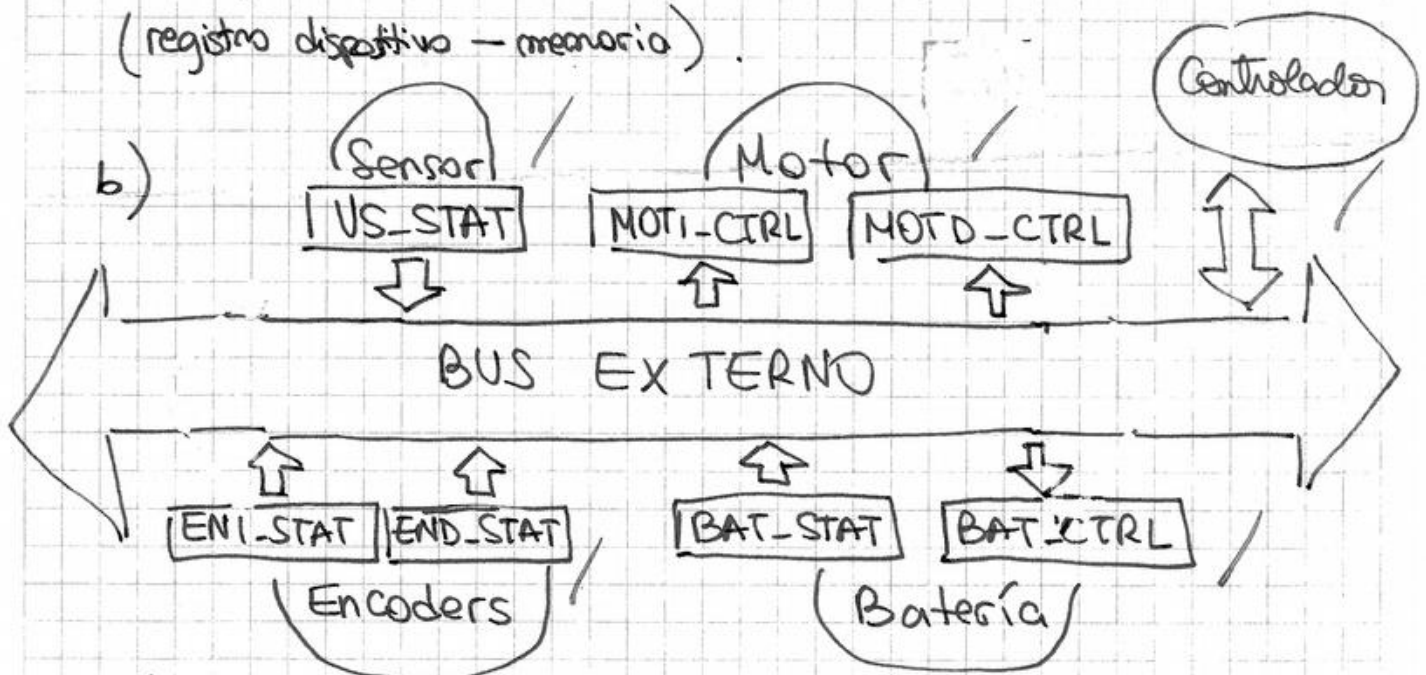 (registro dispositivo - memoria).
Controlador
b)
Sensor
Motor
US_STAT
MOTI_CTRL
MOTD_CTRL
BUS EXTERNO
ENI_STAT
END_STAT
BAT_STAT
BAT_CTRL
Encoders
Batería